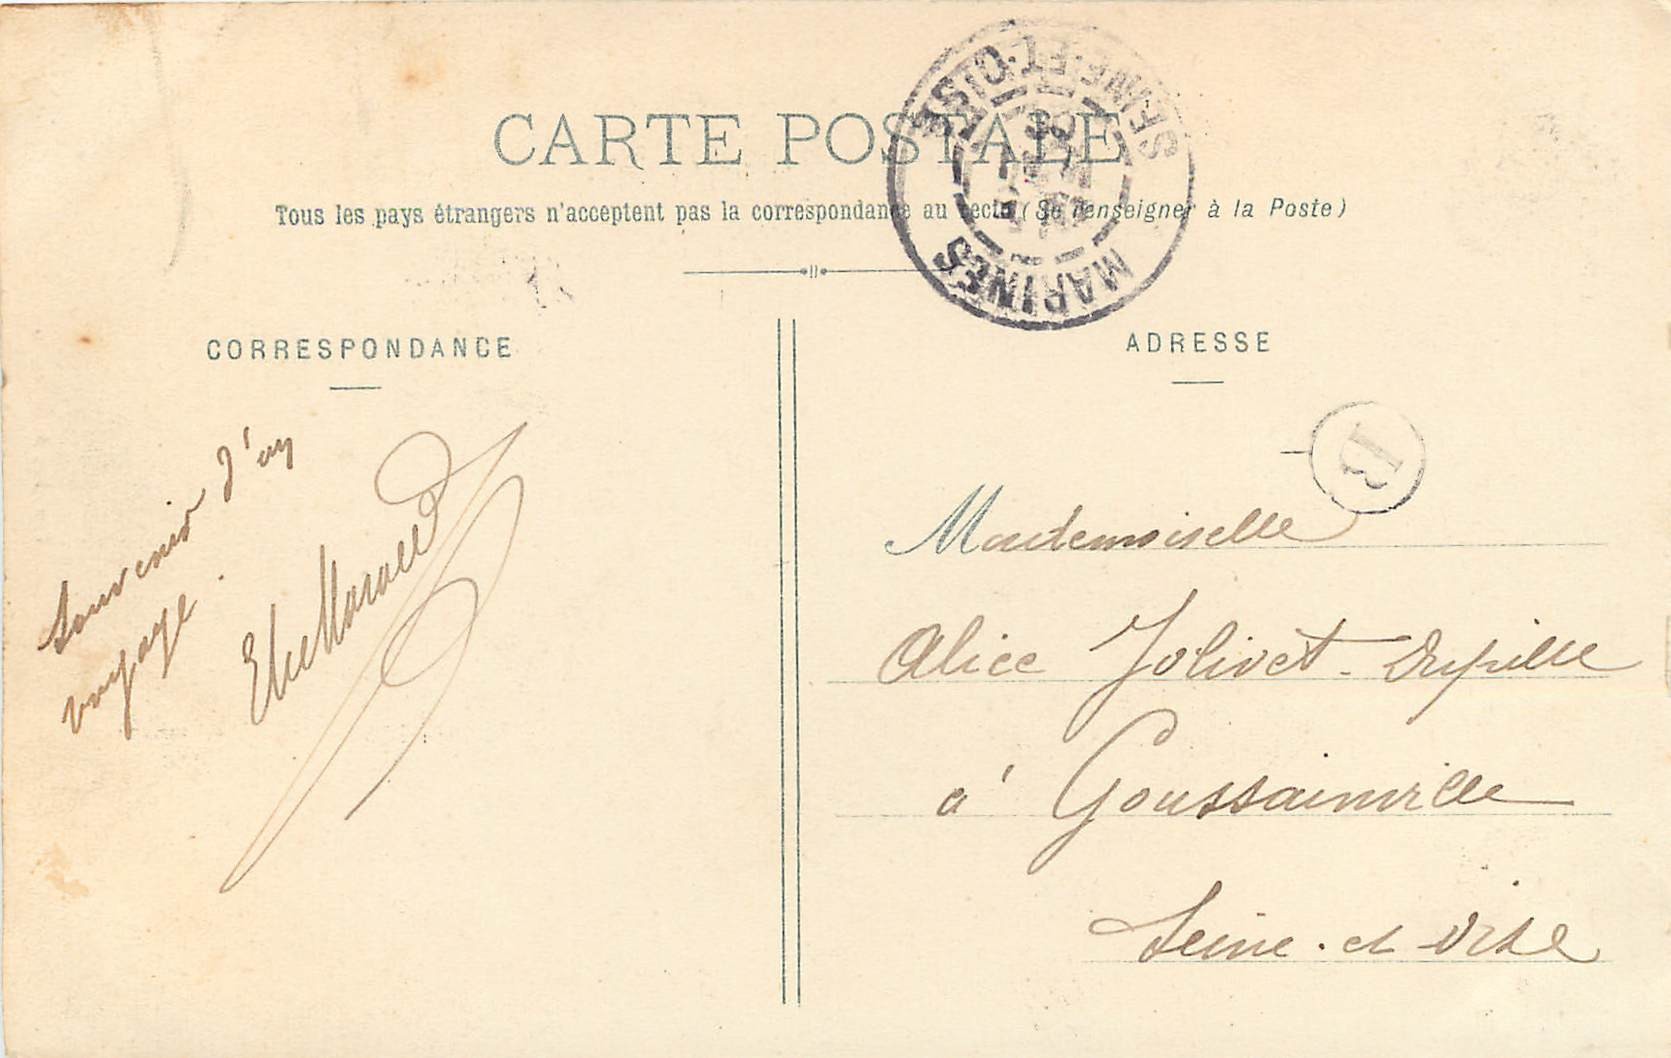 CARTE POSTALE
Tous les pays étrangers n'acceptent pas la correspondance au recto (Se renseigner à la Poste)
MARINES
SEINE-ET-OISE
CORRESPONDANCE
Souvenir d'un
voyage.
ADRESSE
B
Mademoiselle
Alice Jolivet-Dupille
à Goussainville
Seine-et-Oise